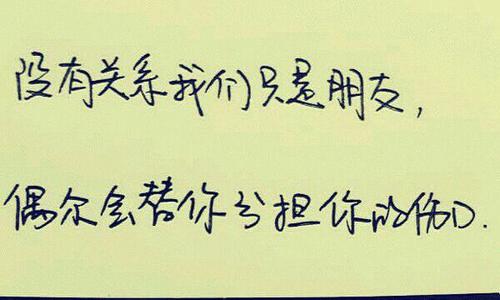 没有关系我们只是朋友，
偶尔会替你分担你的伤口.